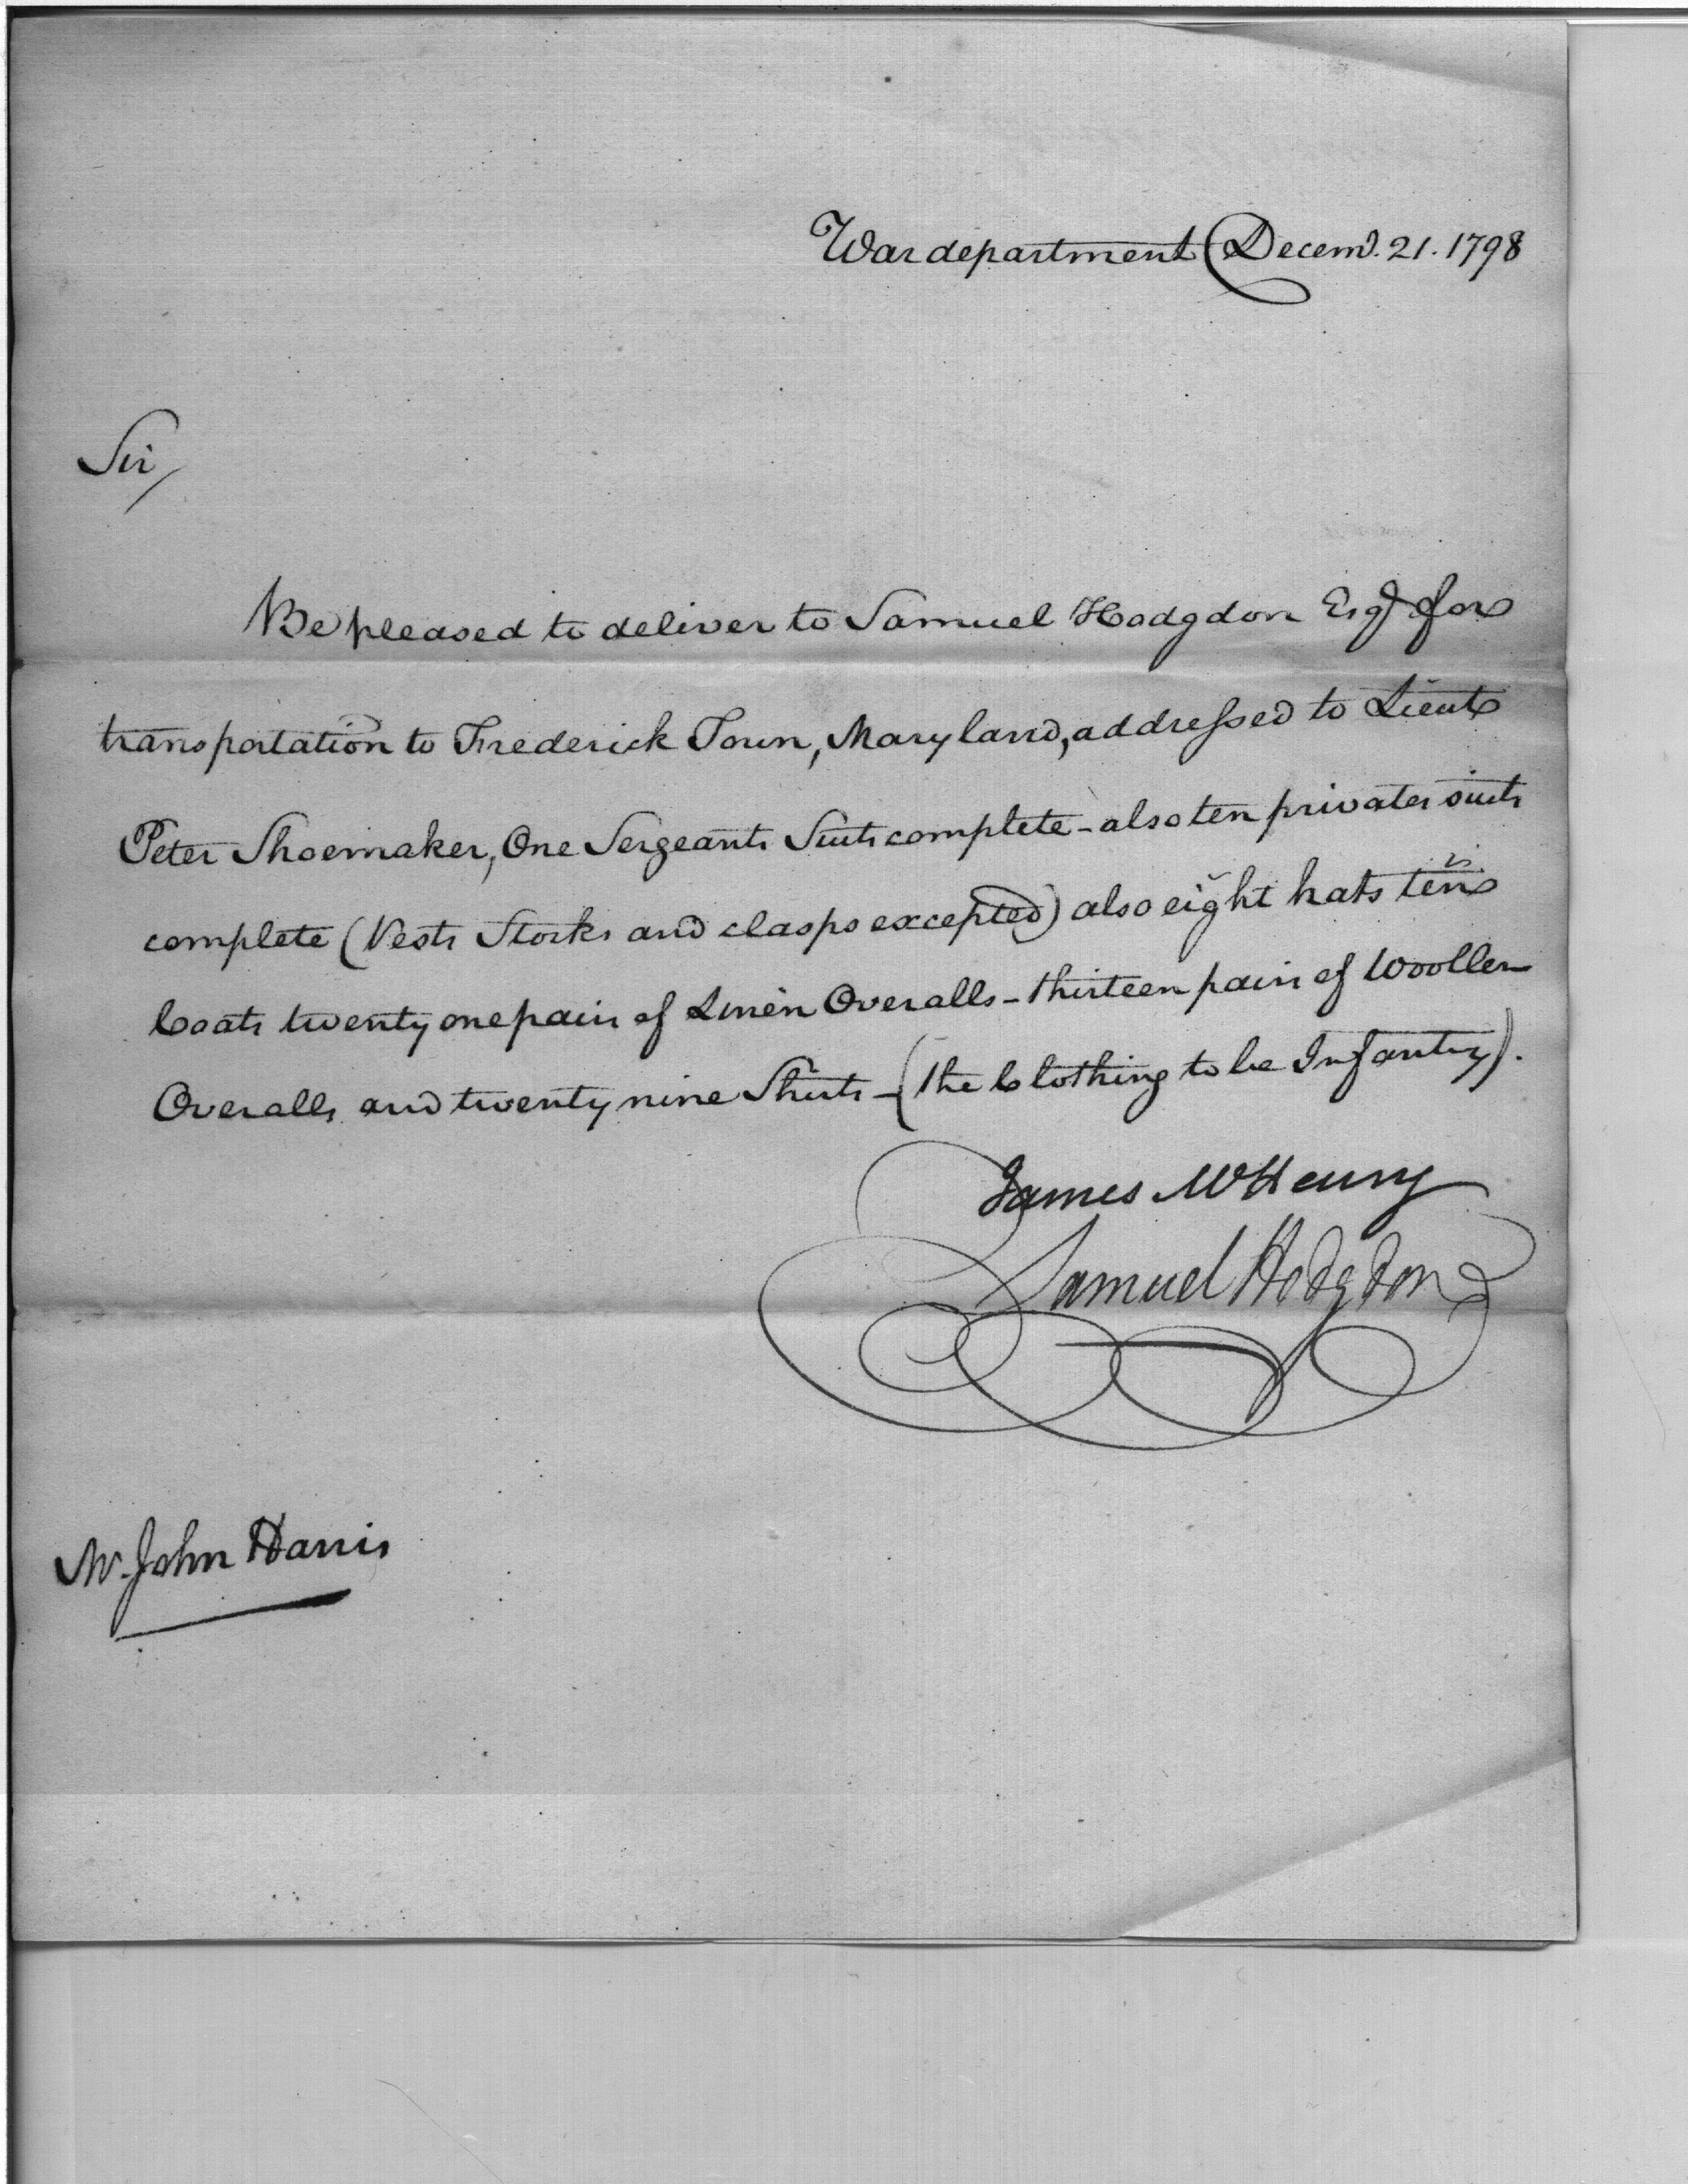 War department Decemr. 21. 1798
Sir,
Be pleased to deliver to Samuel Hodgdon Esqr for
transportation to Frederick Town, Maryland, addressed to Lieut
Peter Shoemaker, One Sergeants Suit complete - also ten privates suits
complete (Vests Stocks and clasps excepted) also eight hats ten
Coats twenty one pairs of Linen Overalls - thirteen pairs of Woollen
Overalls and twenty nine Shirts - (the Clothing to be Infantry).
James McHenry
Samuel Hodgdon
Mr. John Harris